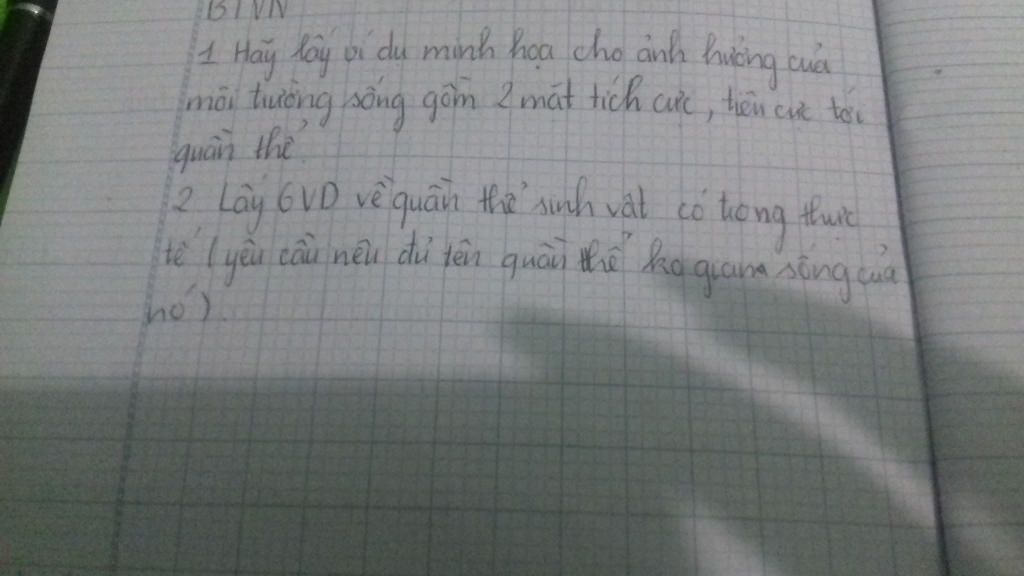 BTVN
1 Hãy lấy ví dụ minh họa cho ảnh hưởng của
môi trường sống gồm 2 mặt tích cực, tiêu cực tới
quần thể.
2 Lấy 6VD về quần thể sinh vật có trong thực
tế (yêu cầu nêu đủ tên quần thể ko gian sống của
nó).